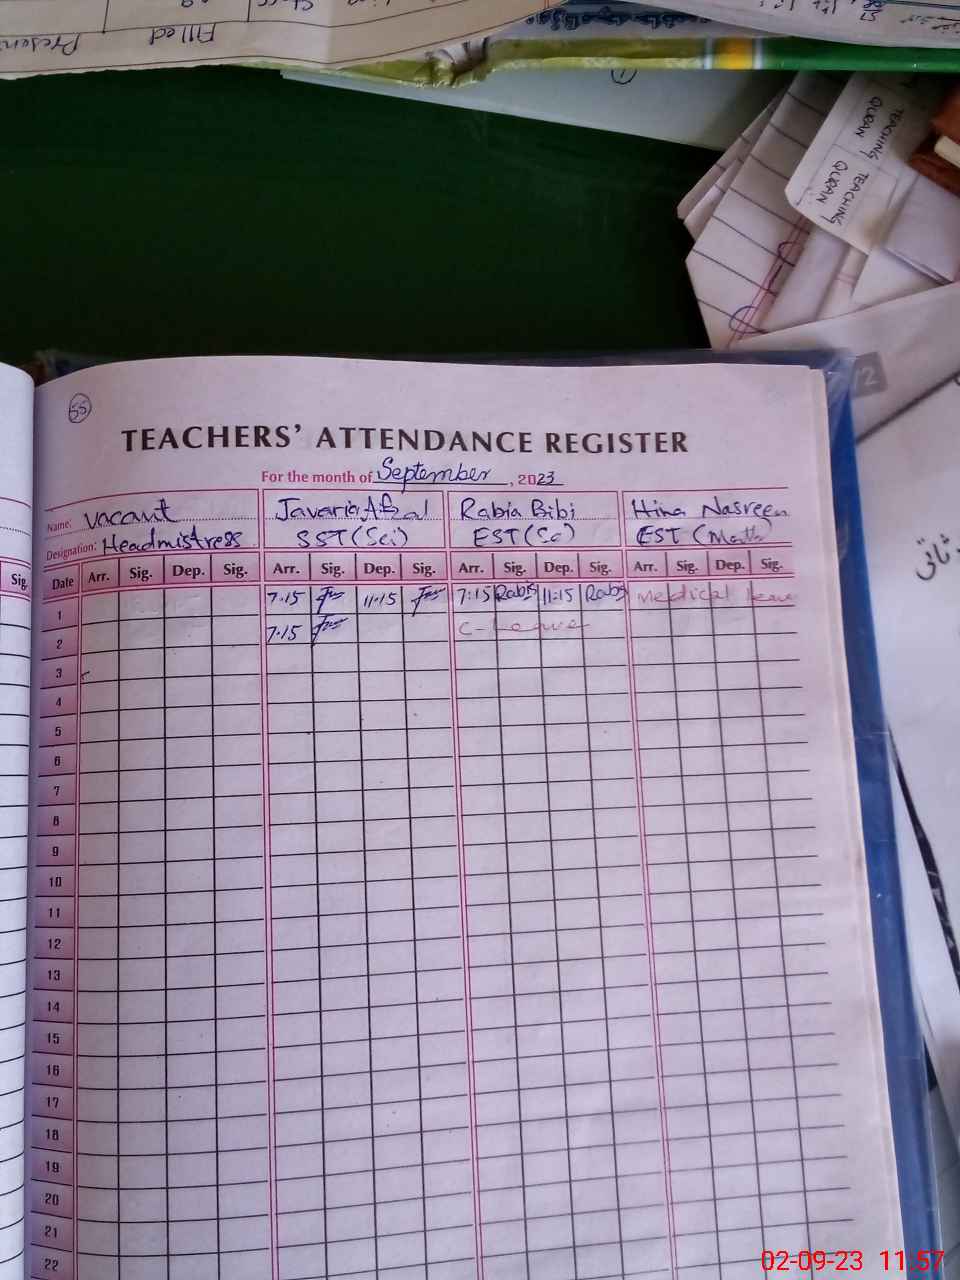 Filled
Presen
TEACHING QURAN
TEACHING QURAN
55
TEACHERS' ATTENDANCE REGISTER
For the month of September, 2023
Name: vacant Javaria Afzal Rabia Bibi Hina Nasreen
Designation: Headmistress SST (Sci) EST (Sc) EST (Math)
Sig. Date Arr. Sig. Dep. Sig. Arr. Sig. Dep. Sig. Arr. Sig. Dep. Sig. Arr. Sig. Dep. Sig.
1 7.15 11.15 7:15 Rabia 11:15 Rabia Medical leave
2 7.15 C-Leave
3
4
5
6
7
8
9
10
11
12
13
14
15
16
17
18
19
20
21
22
02-09-23 11:57